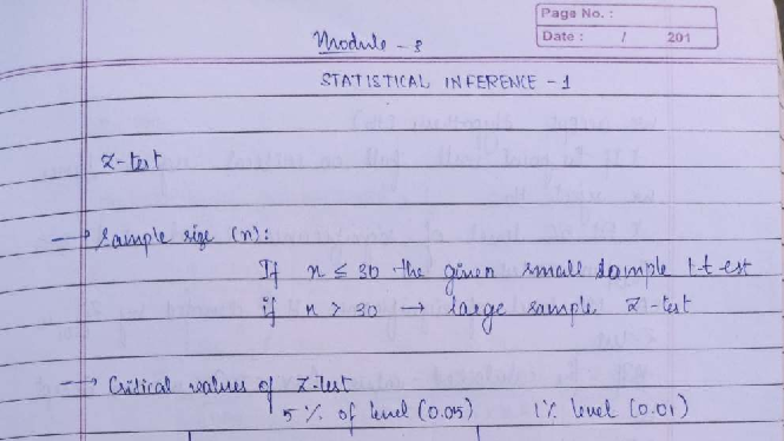 Page No. :
Date : / 201
Module - 3
STATISTICAL INFERENCE - 1
Z-test
→ Sample size (n):
If n ≤ 30 the given small sample t-test
if n > 30 → large sample Z-test
→ Critical values of Z-test
5% of level (0.05) 1% level (0.01)